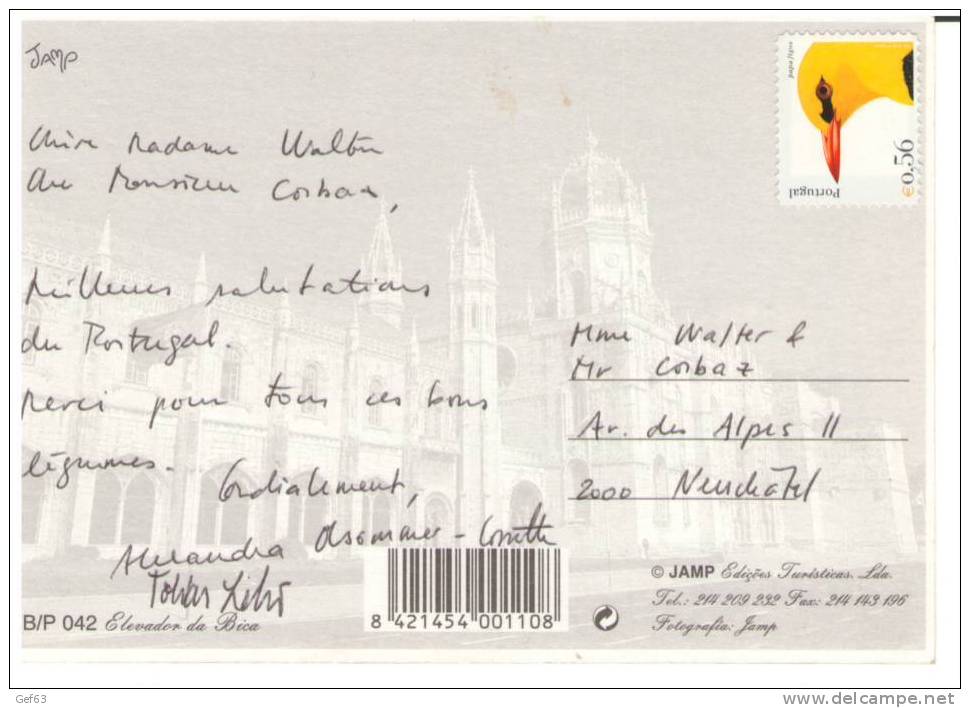 JAMP
papa figos
Portugal
€0.56
Chère Madame Walter
Cher Monsieur Corbaz,
Meilleures salutations
du Portugal.
Merci pour tous ces bons
légumes.
Cordialement,
Alexandra
Mme Walter &
Mr Corbaz
Av. des Alpes 11
2000 Neuchâtel
B/P 042 Elevador da Bica
8 421454 001108
© JAMP Edições Turísticas, Lda.
Tel.: 214 209 232 Fax: 214 143 196
Fotografia: Jamp
Gef63
www.delcampe.net